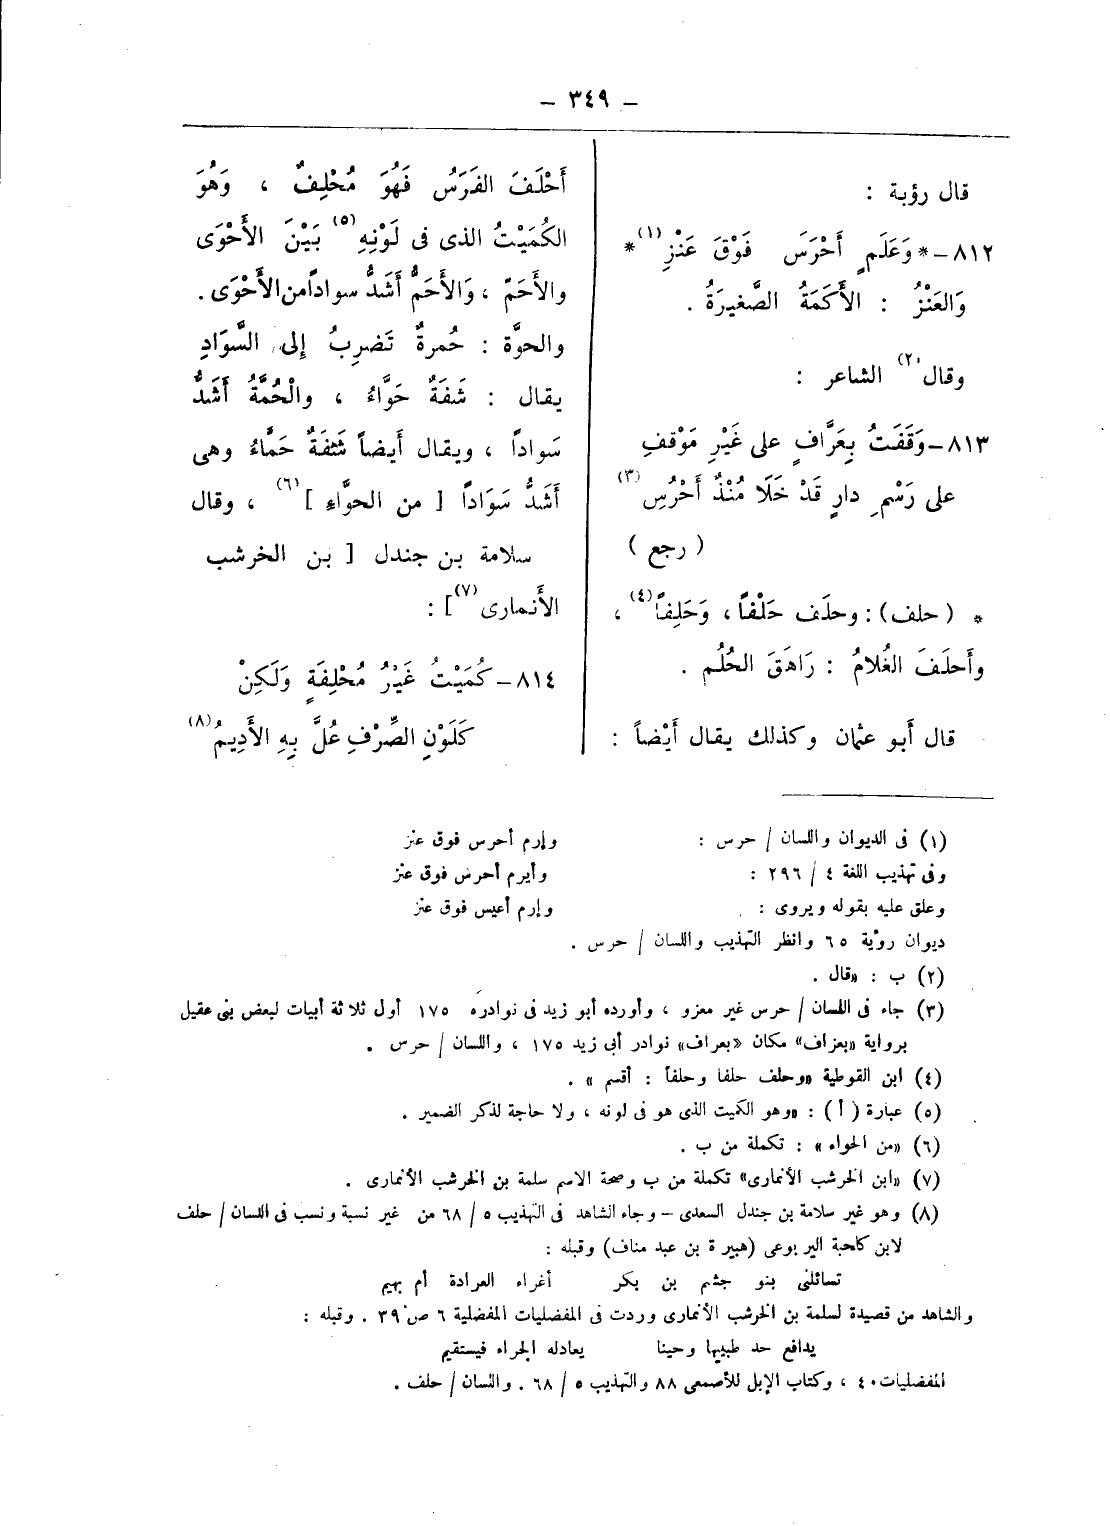 – ٣٤٩ –
قال رؤبة :
٨١٢ – * وَعَلَمٍ أَحْرَسَ فَوْقَ عَنْزِ(١) *
وَالعَنْزُ : الأَكَمَةُ الصَّغيرَةُ .
وقال(٢) الشاعر :
٨١٣ – وَقَفَتُ بِعَرَّافٍ على غَيْرِ مَوْقفِ
على رَسْمِ دارٍ قَدْ خَلَا مُنْذُ أَحْرُسِ(٣)
( رجع )
* ( حلف ) : وحلَف حَلْفاً ، وَحَلِفاً(٤) ،
وأَحلَفَ الغُلامُ : رَاهَقَ الحُلُم .
قال أَبو عثمان وكذلك يقال أَيْضاً :
أَحْلَفَ الفَرَسُ فَهُوَ مُحْلِفٌ ، وَهُوَ
الكُمَيْتُ الذى فى لَوْنِهِ(٥) بَيْنَ الأَحْوَى
والأَحَمّ ، وَالأَحَمُّ أَشَدُّ سواداً من الأَحْوَى .
والحوَّة : حُمرةٌ تَضرِبُ إِلى السَّوَادِ
يقال : شَفَةٌ حَوَّاءُ ، والْحُمَّةُ أَشَدُّ
سَواداً ، ويقال أَيضاً شَفَةٌ حَمَّاءُ وهى
أَشَدُّ سَوَاداً [ من الحوَّاءِ ](٦) ، وقال
سلامة بن جندل [ بن الخرشب
الأَنمارى(٧)] :
٨١٤ – كُمَيْتُ غَيْرُ مُحْلِفَةٍ وَلَكِنْ
كَلَوْنِ الصِّرْفِ عُلَّ بِهِ الأَدِيمُ(٨)
(١) فى الديوان واللسان / حرس : وإرم أحرس فوق عنز
وفى تهذيب اللغة ٤ / ٢٩٦ : وأيرم أحرس فوق عنز
وعلق عليه بقوله ويروى : وإرم أعيس فوق عنز
ديوان رؤبة ٦٥ وانظر التهذيب واللسان / حرس .
(٢) ب : «قال .
(٣) جاء فى اللسان / حرس غير معزو ، وأورده أبو زيد فى نوادره ١٧٥ أول ثلاثة أبيات لبعض بنى عقيل
برواية «بعزاف» مكان «بعراف» نوادر أبى زيد ١٧٥ ، واللسان / حرس .
(٤) ابن القوطية «وحلف حلفا وحلفاً : أقسم » .
(٥) عبارة ( أ ) : «وهو الكميت الذى هو فى لونه ، ولا حاجة لذكر الضمير .
(٦) «من الحواء » : تكملة من ب .
(٧) «ابن الخرشب الأنمارى» تكملة من ب وصحة الاسم سلمة بن الخرشب الأنمارى .
(٨) وهو غير سلامة بن جندل السعدى – وجاء الشاهد فى التهذيب ٥ / ٦٨ من غير نسبة ونسب فى اللسان / حلف
لابن كلحبة اليربوعى (هبيرة بن عبد مناف) وقبله :
تسائلنى بنو جشم بن بكر أغراء العرادة أم بهيم
والشاهد من قصيدة لسلمة بن الخرشب الأنمارى وردت فى المفضليات المفضلية ٦ ص ٣٩ . وقبله :
يدافع حد طبيها وحينا يعادله الجراء فيستقيم
المفضليات ٤٠ ، وكتاب الإبل للأصمعى ٨٨ والتهذيب ٥ / ٦٨ . واللسان / حلف .